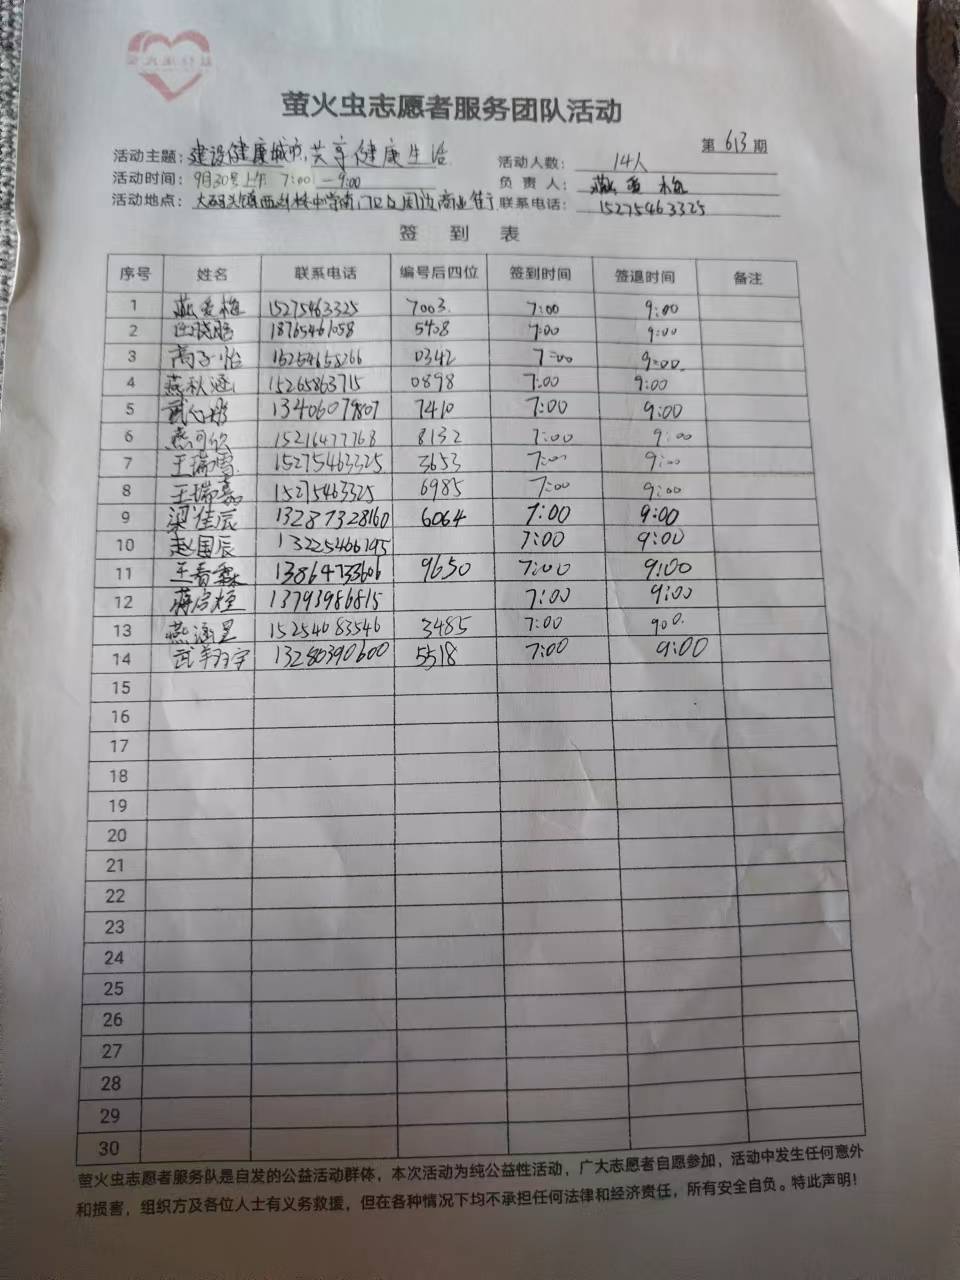 萤火虫志愿者服务团队活动
第 613 期
活动主题：建设健康城市，共享健康生活
活动人数：14人
活动时间：9月30号上午 7:00—9:00
负责人：燕爱梅
活动地点：大码头镇西刘桥中学南门口及周边商业街
联系电话：15275463325
签到表
序号 姓名 联系电话 编号后四位 签到时间 签退时间 备注
1 燕爱梅 15275463325 7003. 7:00 9:00
2 18765461058 5408 7:00 9:00
3 高子怡 15254658266 0342 7:00 9:00.
4 燕秋涵 15265863715 0898 7:00 9:00
5 武心彤 13406079807 7410 7:00 9:00
6 燕可欣 15216477768 8132 7:00 9:00
7 王瑞雪 15275463325 3653 7:00 9:00
8 王瑞嘉 15275463325 6985 7:00 9:00
9 梁佳辰 13287328160 6064 7:00 9:00
10 赵国辰 13225466195 7:00 9:00
11 王春霖 13864733606 9650 7:00 9:00
12 蒋启煊 13793986815 7:00 9:00
13 燕涵星 15254683546 3485 7:00 900.
14 武翔宇 13280390600 5518 7:00 9:00
15
16
17
18
19
20
21
22
23
24
25
26
27
28
29
30
萤火虫志愿者服务队是自发的公益活动群体，本次活动为纯公益性活动，广大志愿者自愿参加，活动中发生任何意外
和损害，组织方及各位人士有义务救援，但在各种情况下均不承担任何法律和经济责任，所有安全自负。特此声明！